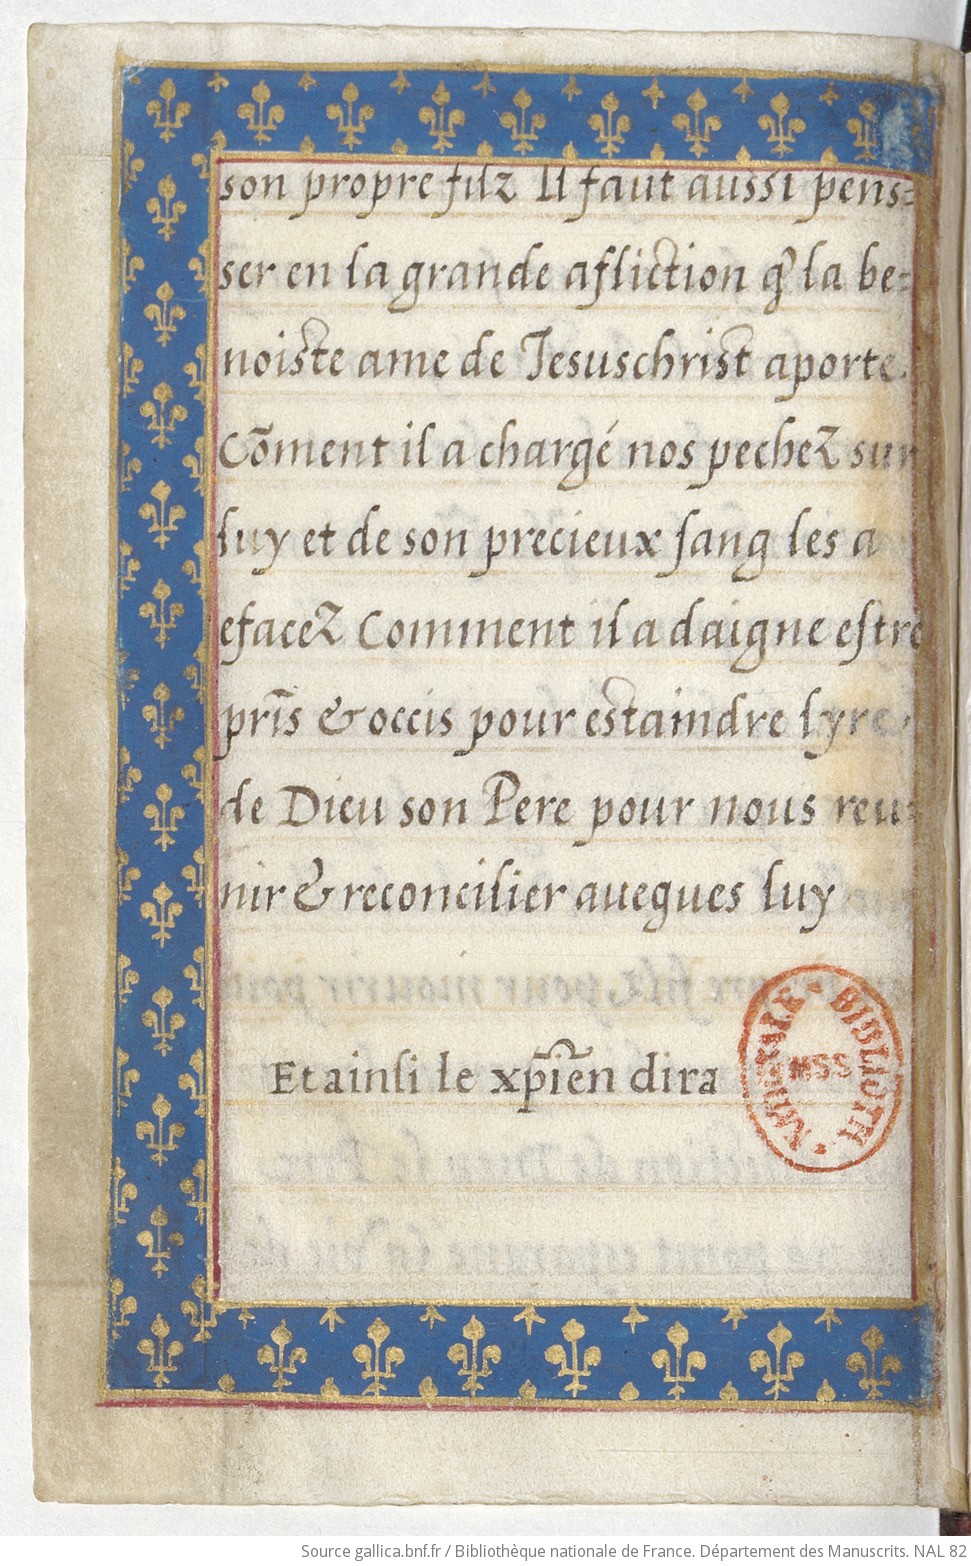 son propre filz Il faut aussi pens=
ser en la grande afliction q̃ la be=
noiste ame de Jesuschrist aporte.
Cõment il a chargé nos pechez sur
luy et de son precieux sang les a
efacez Comment il a daigne estre
prĩs & occis pour estaindre lyre
de Dieu son Pere pour nous reu=
nir & reconcilier aveques luy
Et ainsi le xp̃ien dira
BIBLIOTH.
MSS
Source gallica.bnf.fr / Bibliothèque nationale de France. Département des Manuscrits. NAL 82